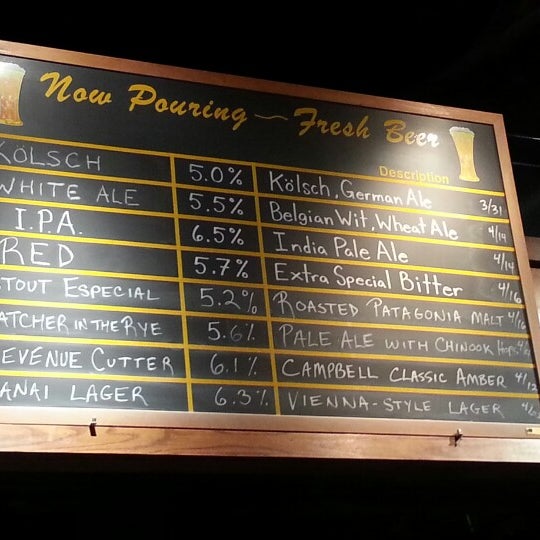 Now Pouring — Fresh Beer
Description
KÖLSCH 5.0% Kölsch, German Ale 3/31
WHITE ALE 5.5% Belgian Wit, Wheat Ale 4/14
I.P.A. 6.5% India Pale Ale 4/14
RED 5.7% Extra Special Bitter 4/16
TOUT ESPECIAL 5.2% ROASTED PATAGONIA MALT 4/16
ATCHER IN THE RYE 5.6% PALE ALE WITH CHINOOK Hops
EVENUE CUTTER 6.1% CAMPBELL CLASSIC AMBER
ANAI LAGER 6.3% VIENNA-STYLE LAGER